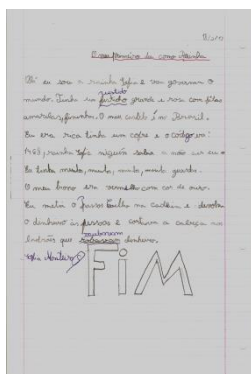 O meu primeiro dia como Rainha
Olá eu sou a rainha Sofia e vou governar o
vestido
mundo. Tinha um grande e rosa com fitas
amarelas, fininhas. O meu castelo é no Brasil.
Eu era rica tinha um cofre e o código era:
rainha Sofia ninguém sabia a não ser eu e
Eu tinha muito, muito, muito, muito guarda.
O meu trono era vermelho com cor de ouro.
Eu metia o Passos Coelho na cadeia e devolvia
o dinheiro às pessoas e cortava a cabeça aos
roubavam
ladrões que dinheiro.
Sofia Monteiro
FIM